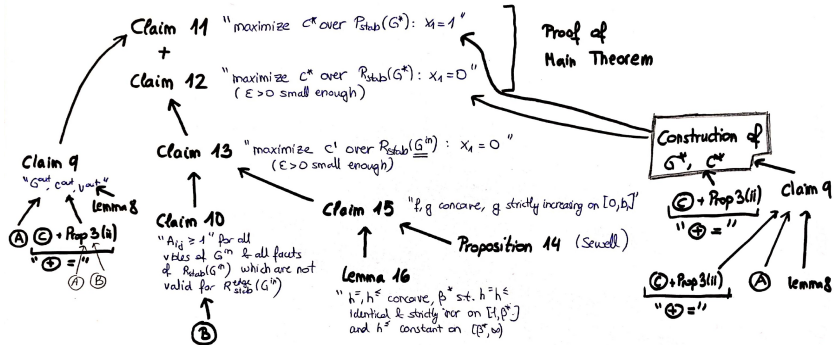 Claim 11 "maximize c* over P_stab(G*): x₁=1"
+
Claim 12 "maximize c* over R_stab(G*): x₁=0"
(ε>0 small enough)
Proof of
Main Theorem
Claim 13 "maximize c' over R_stab(G^in): x₁=0"
(ε>0 small enough)
Construction of
G*, c*
Claim 9
"G^out, c^out, v^out"
Lemma 8
Ⓐ Ⓒ + Prop 3(ii)
"⊕ ="
Ⓐ Ⓑ
Claim 10
"A_ij ≥ 1" for all
vbles of G^in & all facets
of R_stab(G^in) which are not
valid for R^edge_stab(G^in)
Ⓑ
Claim 15 "f, g concave, g strictly increasing on [0,b,]"
Proposition 14 (Sewell)
Lemma 16
"h^=, h^≤ concave, β* s.t. h^= h^≤
identical & strictly incr on [1,β*]
and h^≤ constant on [β*,∞)
Claim 9
Ⓒ + Prop 3(ii)
"⊕ ="
Ⓒ + Prop 3(ii) Ⓐ Lemma 8
"⊕ ="